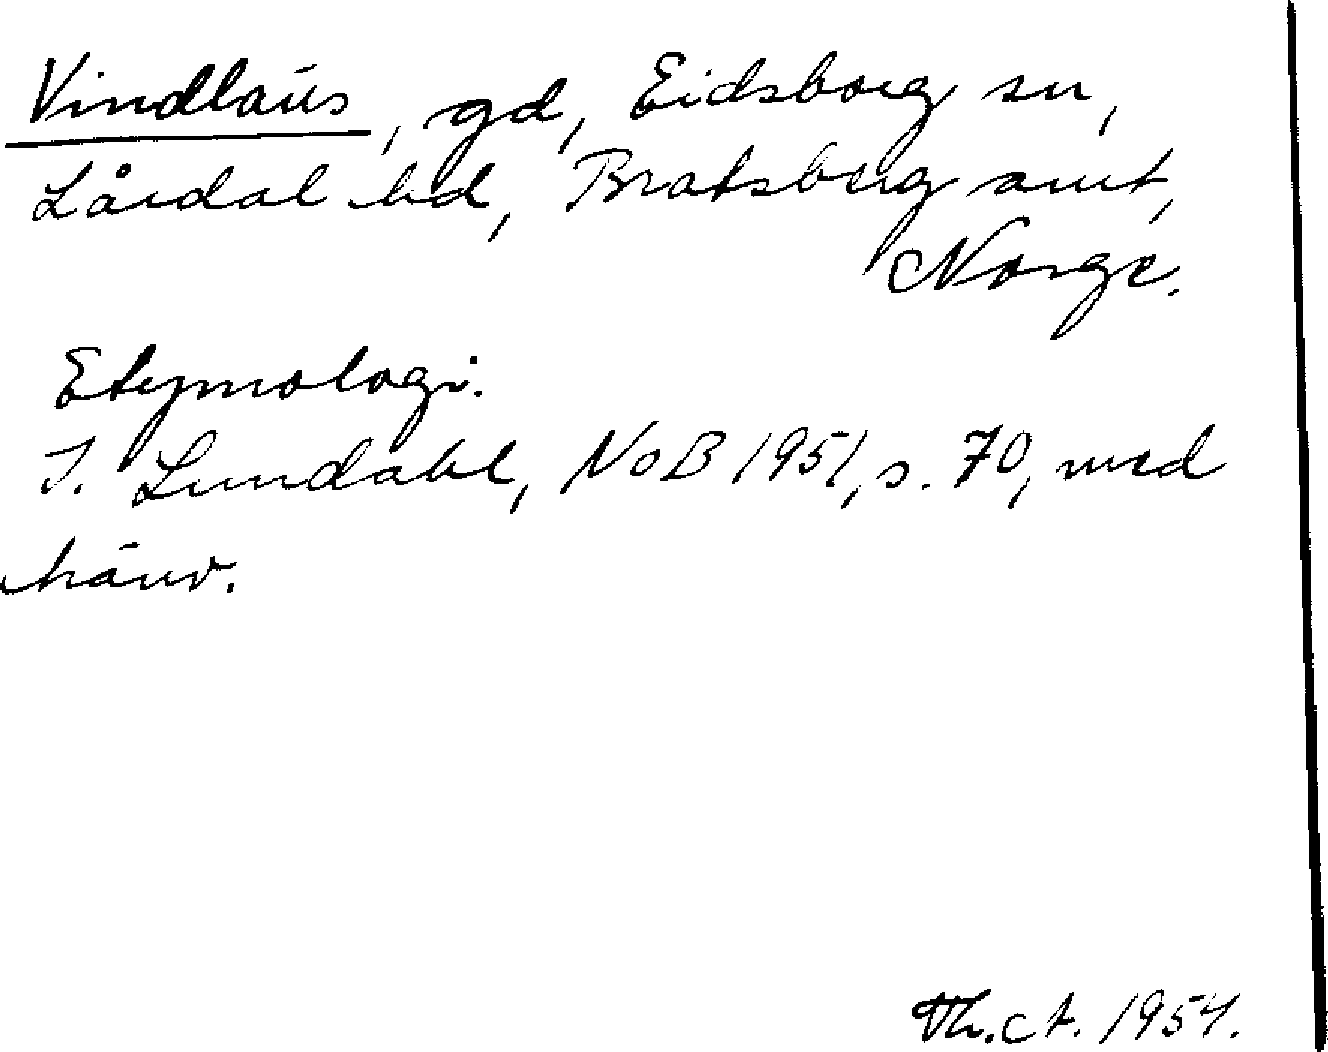 Vindlaus, gd, Eidsborg sn,
Lårdal hd, Bratsberg amt,
Norge.
Etymologi.
I. Lundahl, NoB 1951, s. 70, med
hänv.
Th. ct. 1954.